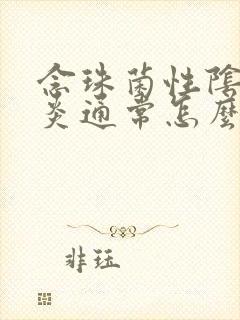 念珠菌性陰
炎通常怎麼
非珏